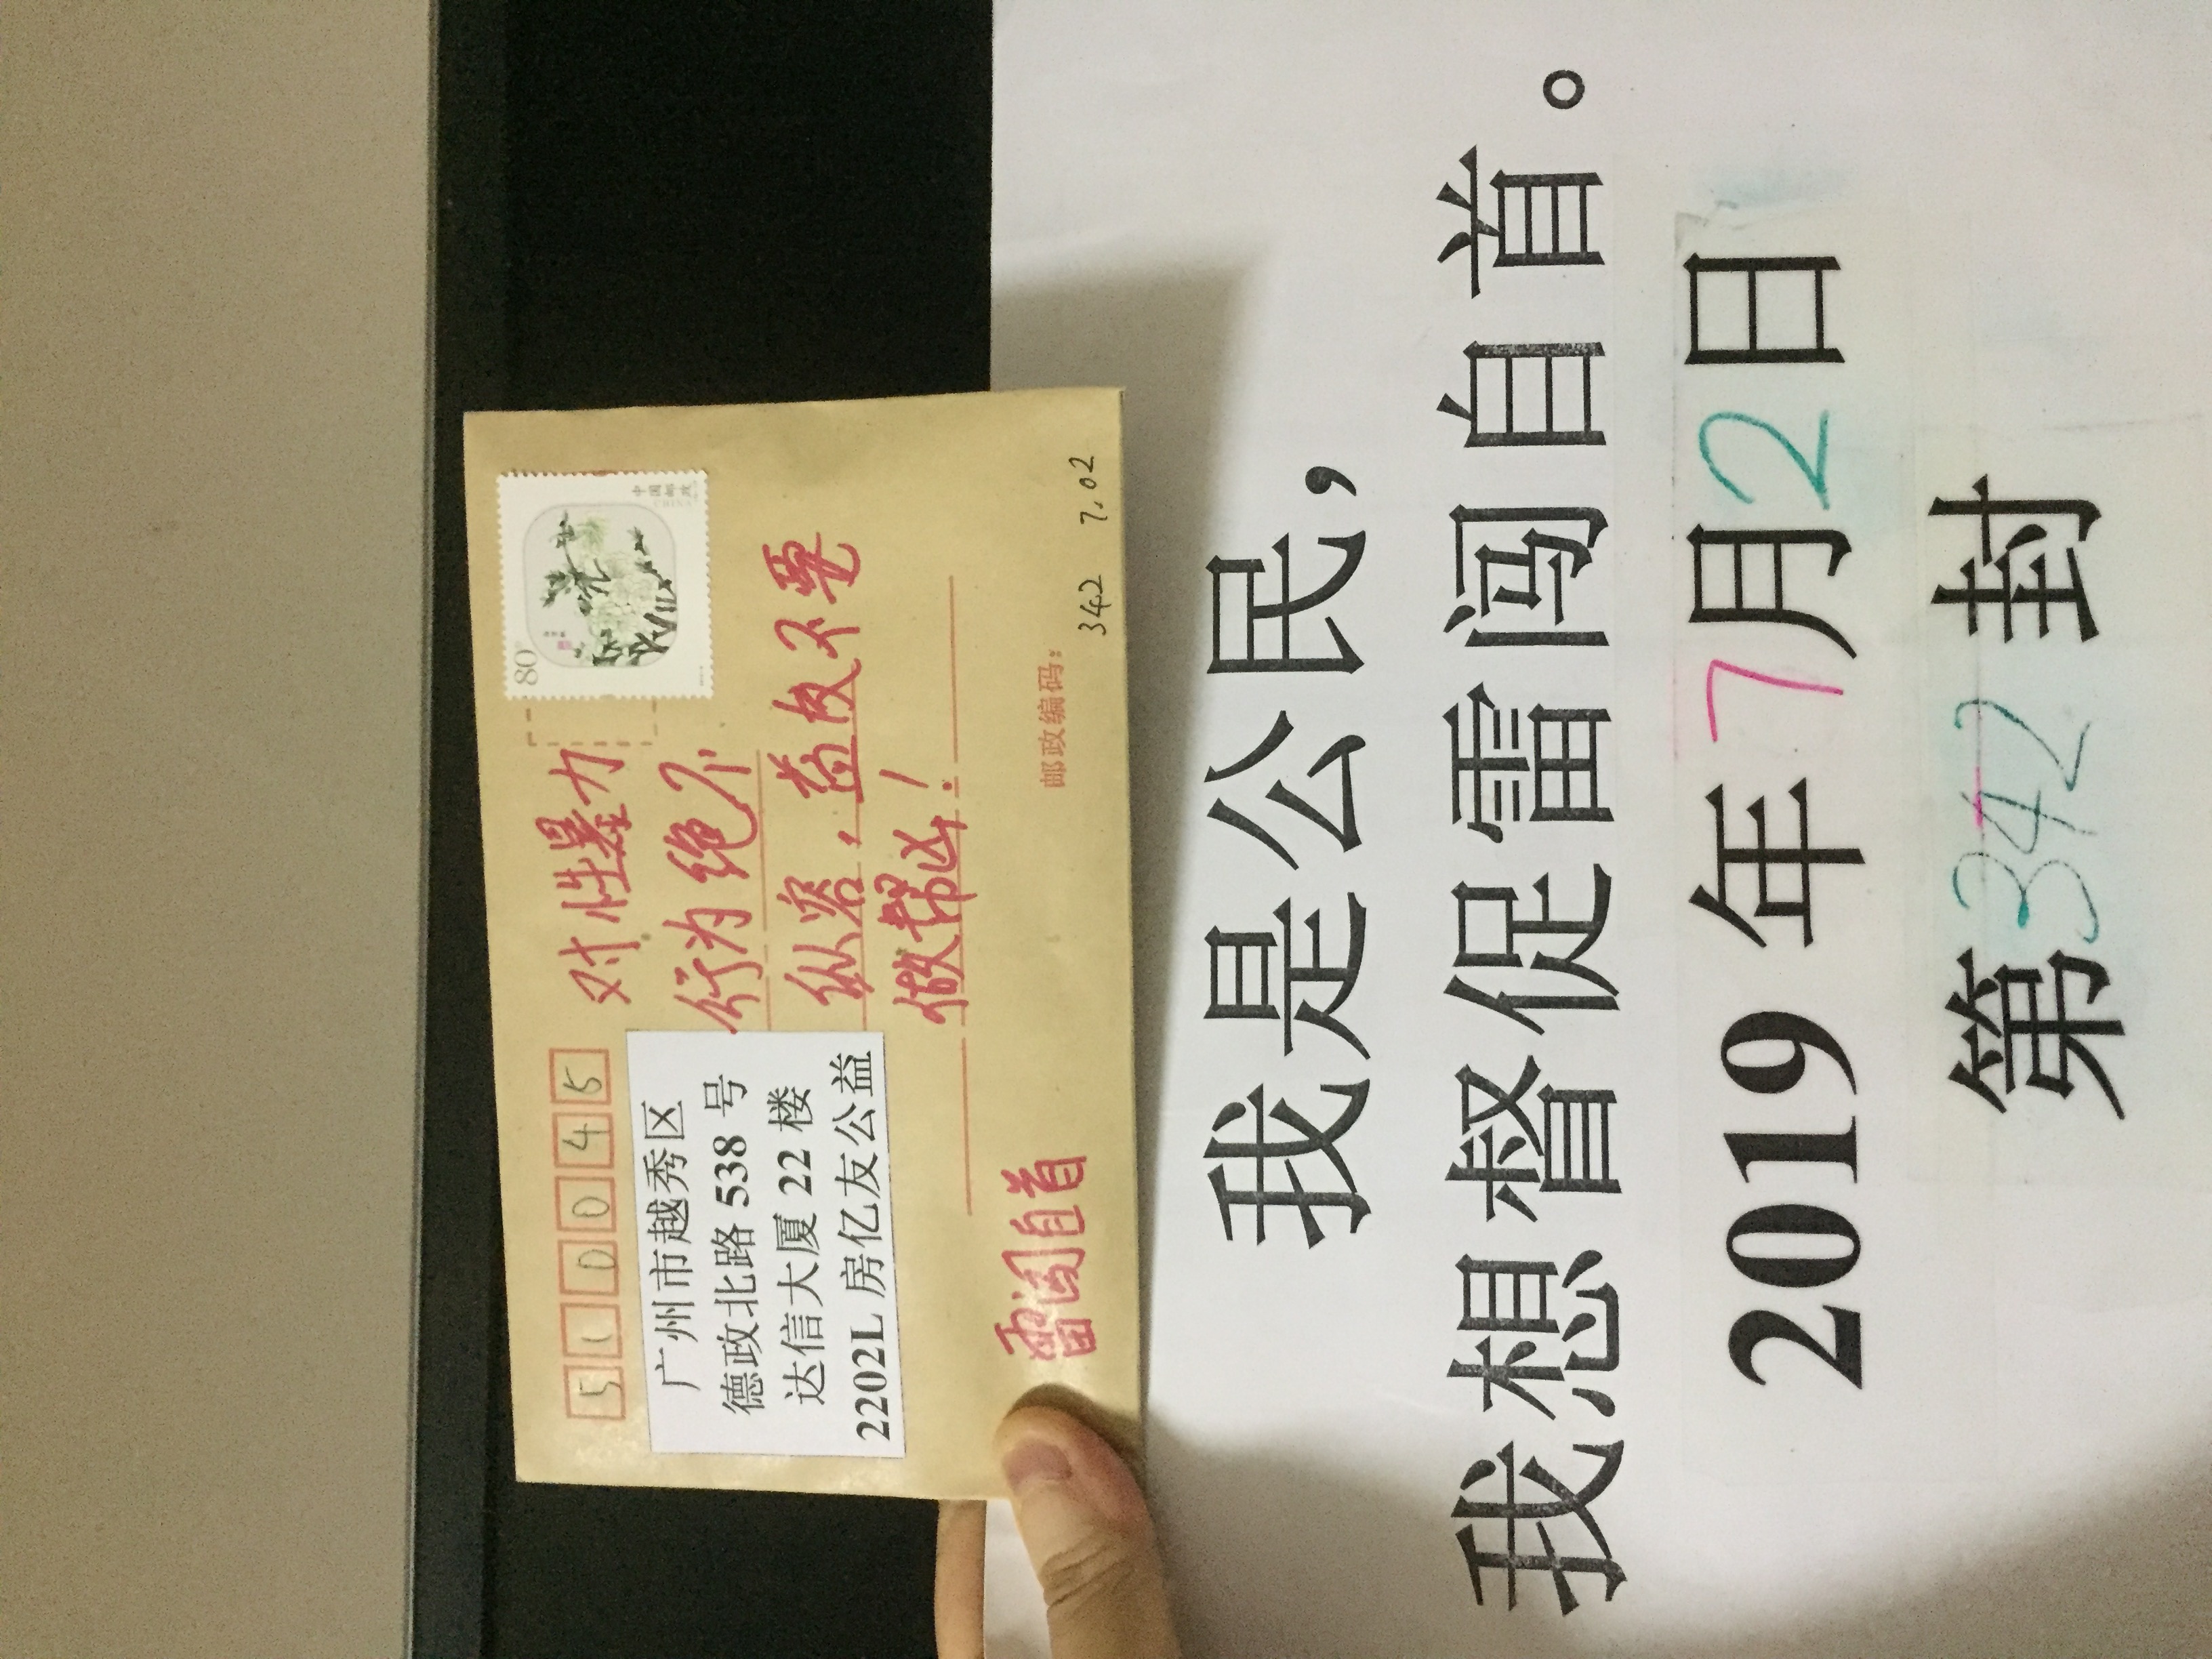 510045
80
中国邮政
广州市越秀区
德政北路 538 号
达信大厦 22 楼
2202L 房亿友公益
对性暴力
行为绝不
纵容，益友不要
做帮凶！
雷闯自首
邮政编码：
342 7.02
我是公民，
我想督促雷闯自首。
2019 年 7月2日
第342封